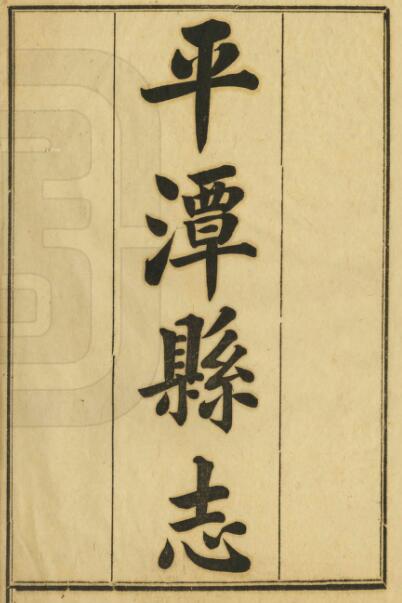 平潭縣志